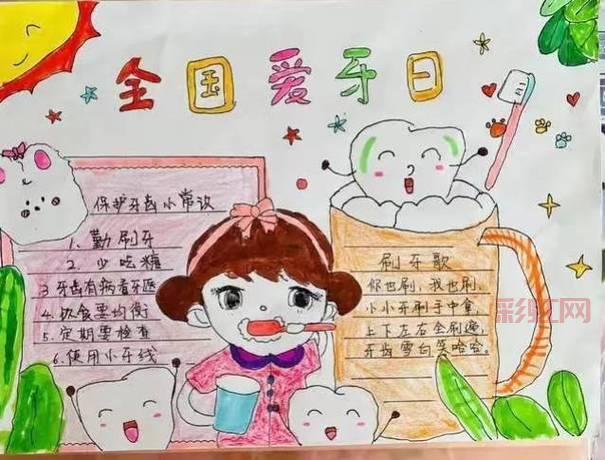 全国爱牙日
保护牙齿小常识
1. 勤刷牙
2. 少吃糖
3 牙齿有病看牙医
4. 饮食要均衡
5. 定期要检查
6. 使用小牙线
刷牙歌
你也刷,我也刷,
小小牙刷手中拿,
上下左右全刷遍,
牙齿雪白笑哈哈。
彩虹网